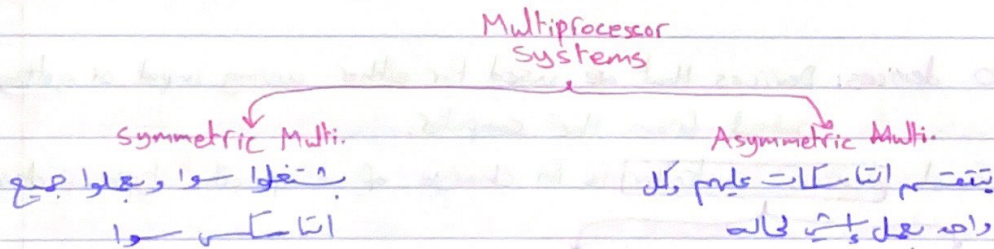 Multiprocessor
Systems
Symmetric Multi.
بشتغلوا سوا وبعملوا جميع
التاسكس سوا
Asymmetric Multi.
بتتقسم التاسكات عليهم وكل
واحد بعمل إشي لحاله